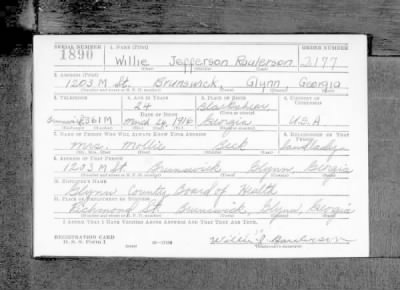 SERIAL NUMBER 1. NAME (Print) ORDER NUMBER
1890 Willie Jefferson Raulerson 2177
(First) (Middle) (Last)
2. ADDRESS (Print)
1203 M St. Brunswick, Glynn Georgia
3. TELEPHONE 4. AGE IN YEARS 5. PLACE OF BIRTH 6. COUNTRY OF CITIZENSHIP
24 Blackshear
DATE OF BIRTH
8361 M March 26, 1916 Georgia U.S.A
(Exchange) (Number) (Mo.) (Day) (Yr.) (State or county)
7. NAME OF PERSON WHO WILL ALWAYS KNOW YOUR ADDRESS 8. RELATIONSHIP OF THAT PERSON
Mrs. Mollie Landlady
(Mr., Mrs., Miss) (First) (Middle) (Last)
9. ADDRESS OF THAT PERSON
1203 M St. Brunswick Glynn, Georgia
10. EMPLOYER'S NAME
Glynn County Board of Health
11. PLACE OF EMPLOYMENT OR BUSINESS
Richmond St. Brunswick, Glynn, Georgia
I AFFIRM THAT I HAVE VERIFIED ABOVE ANSWERS AND THAT THEY ARE TRUE.
REGISTRATION CARD
D. S. S. Form 1 Willie J Raulerson